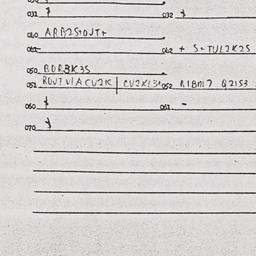 031 $ 032 $
040 ARB2S+OJT+
041 042 + S+TUL2K2S
050 BORBK3S
051 ROUTVIACV2K | CV2KL3A 052 RIBM7 Q2153
060 $ 061 -
070 $